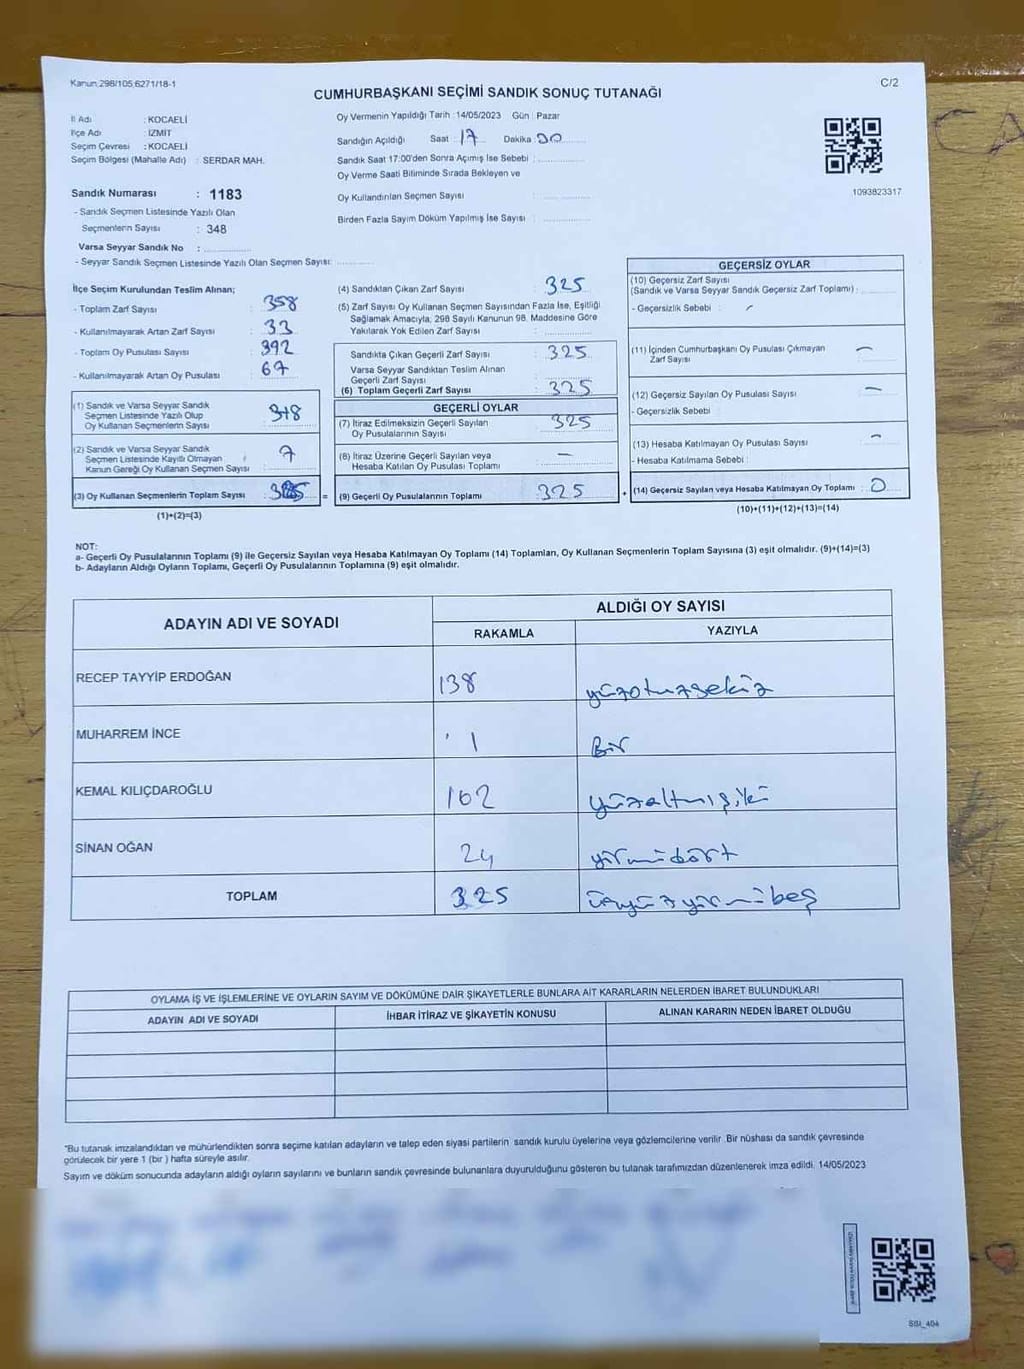 Kanun.298/105,6271/18-1
C/2
CUMHURBAŞKANI SEÇİMİ SANDIK SONUÇ TUTANAĞI
İl Adı : KOCAELİ
İlçe Adı : İZMİT
Seçim Çevresi : KOCAELİ
Seçim Bölgesi (Mahalle Adı) : SERDAR MAH.
Sandık Numarası : 1183
- Sandık Seçmen Listesinde Yazılı Olan
Seçmenlerin Sayısı : 348
Varsa Seyyar Sandık No :
- Seyyar Sandık Seçmen Listesinde Yazılı Olan Seçmen Sayısı:
Oy Vermenin Yapıldığı Tarih : 14/05/2023 Gün : Pazar
Sandığın Açıldığı Saat : 17 Dakika : 00
Sandık Saat 17:00'den Sonra Açılmış İse Sebebi :
Oy Verme Saati Bitiminde Sırada Bekleyen ve
Oy Kullandırılan Seçmen Sayısı :
Birden Fazla Sayım Döküm Yapılmış İse Sayısı :
1093823317
İlçe Seçim Kurulundan Teslim Alınan;
- Toplam Zarf Sayısı : 358
- Kullanılmayarak Artan Zarf Sayısı : 33
- Toplam Oy Pusulası Sayısı : 392
- Kullanılmayarak Artan Oy Pusulası : 67
(1) Sandık ve Varsa Seyyar Sandık
Seçmen Listesinde Yazılı Olup
Oy Kullanan Seçmenlerin Sayısı : 318
(2) Sandık ve Varsa Seyyar Sandık
Seçmen Listesinde Kayıtlı Olmayan
Kanun Gereği Oy Kullanan Seçmen Sayısı : 7
(3) Oy Kullanan Seçmenlerin Toplam Sayısı : 325 =
(1)+(2)=(3)
(4) Sandıktan Çıkan Zarf Sayısı : 325
(5) Zarf Sayısı Oy Kullanan Seçmen Sayısından Fazla İse, Eşitliği
Sağlamak Amacıyla, 298 Sayılı Kanunun 98. Maddesine Göre
Yakılarak Yok Edilen Zarf Sayısı :
Sandıkta Çıkan Geçerli Zarf Sayısı : 325
Varsa Seyyar Sandıktan Teslim Alınan
Geçerli Zarf Sayısı :
(6) Toplam Geçerli Zarf Sayısı : 325
GEÇERLİ OYLAR
(7) İtiraz Edilmeksizin Geçerli Sayılan
Oy Pusulalarının Sayısı : 325
(8) İtiraz Üzerine Geçerli Sayılan veya
Hesaba Katılan Oy Pusulası Toplamı : —
(9) Geçerli Oy Pusulalarının Toplamı : 325 +
GEÇERSİZ OYLAR
(10) Geçersiz Zarf Sayısı
(Sandık ve Varsa Seyyar Sandık Geçersiz Zarf Toplamı) :
- Geçersizlik Sebebi : -
(11) İçinden Cumhurbaşkanı Oy Pusulası Çıkmayan
Zarf Sayısı : —
(12) Geçersiz Sayılan Oy Pusulası Sayısı : —
- Geçersizlik Sebebi :
(13) Hesaba Katılmayan Oy Pusulası Sayısı : —
- Hesaba Katılmama Sebebi :
(14) Geçersiz Sayılan veya Hesaba Katılmayan Oy Toplamı : 0
(10)+(11)+(12)+(13)=(14)
NOT:
a- Geçerli Oy Pusulalarının Toplamı (9) ile Geçersiz Sayılan veya Hesaba Katılmayan Oy Toplamı (14) Toplamları, Oy Kullanan Seçmenlerin Toplam Sayısına (3) eşit olmalıdır. (9)+(14)=(3)
b- Adayların Aldığı Oyların Toplamı, Geçerli Oy Pusulalarının Toplamına (9) eşit olmalıdır.
ADAYIN ADI VE SOYADI
ALDIĞI OY SAYISI
RAKAMLA YAZIYLA
RECEP TAYYİP ERDOĞAN 138 yüzotuzsekiz
MUHARREM İNCE 1 Bir
KEMAL KILIÇDAROĞLU 162 yüzaltmışiki
SİNAN OĞAN 24 yirmidört
TOPLAM 325 üçyüzyirmibeş
OYLAMA İŞ VE İŞLEMLERİNE VE OYLARIN SAYIM VE DÖKÜMÜNE DAİR ŞİKAYETLERLE BUNLARA AİT KARARLARIN NELERDEN İBARET BULUNDUKLARI
ADAYIN ADI VE SOYADI İHBAR İTİRAZ VE ŞİKAYETİN KONUSU ALINAN KARARIN NEDEN İBARET OLDUĞU
*Bu tutanak imzalandıktan ve mühürlendikten sonra seçime katılan adayların ve talep eden siyasi partilerin sandık kurulu üyelerine veya gözlemcilerine verilir. Bir nüshası da sandık çevresinde
görülecek bir yere 1 (bir ) hafta süreyle asılır.
Sayım ve döküm sonucunda adayların aldığı oyların sayılarını ve bunların sandık çevresinde bulunanlara duyurulduğunu gösteren bu tutanak tarafımızdan düzenlenerek imza edildi. 14/05/2023
SSI_404